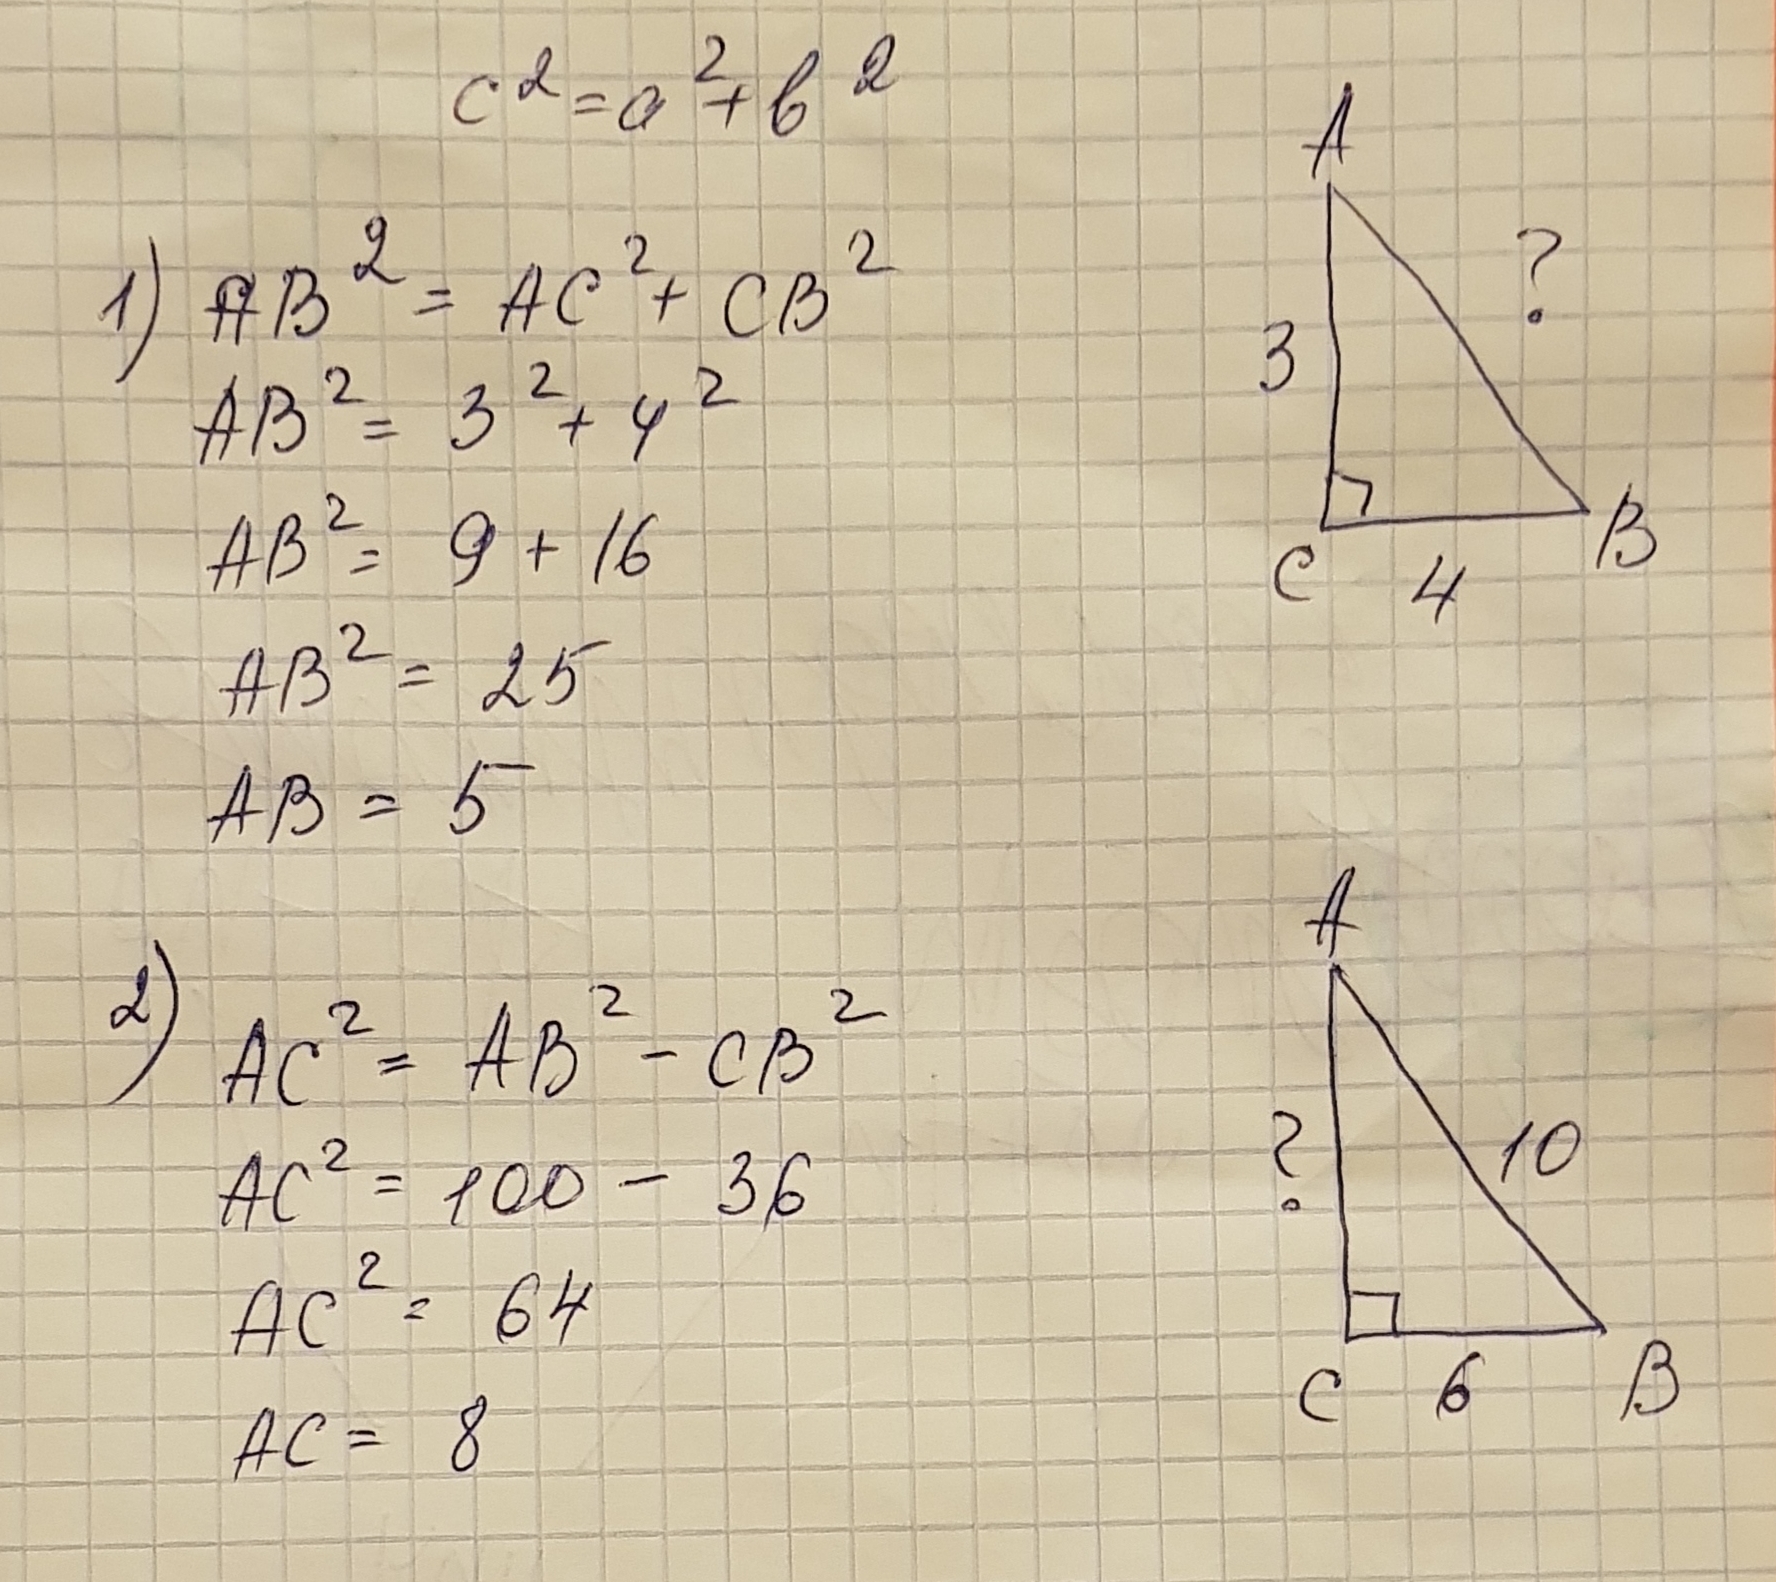 c² = a² + b²
1) AB² = AC² + CB²
AB² = 3² + 4²
AB² = 9 + 16
AB² = 25
AB = 5
A
?
3
C 4 B
2) AC² = AB² - CB²
AC² = 100 - 36
AC² = 64
AC = 8
A
? 10
C 6 B